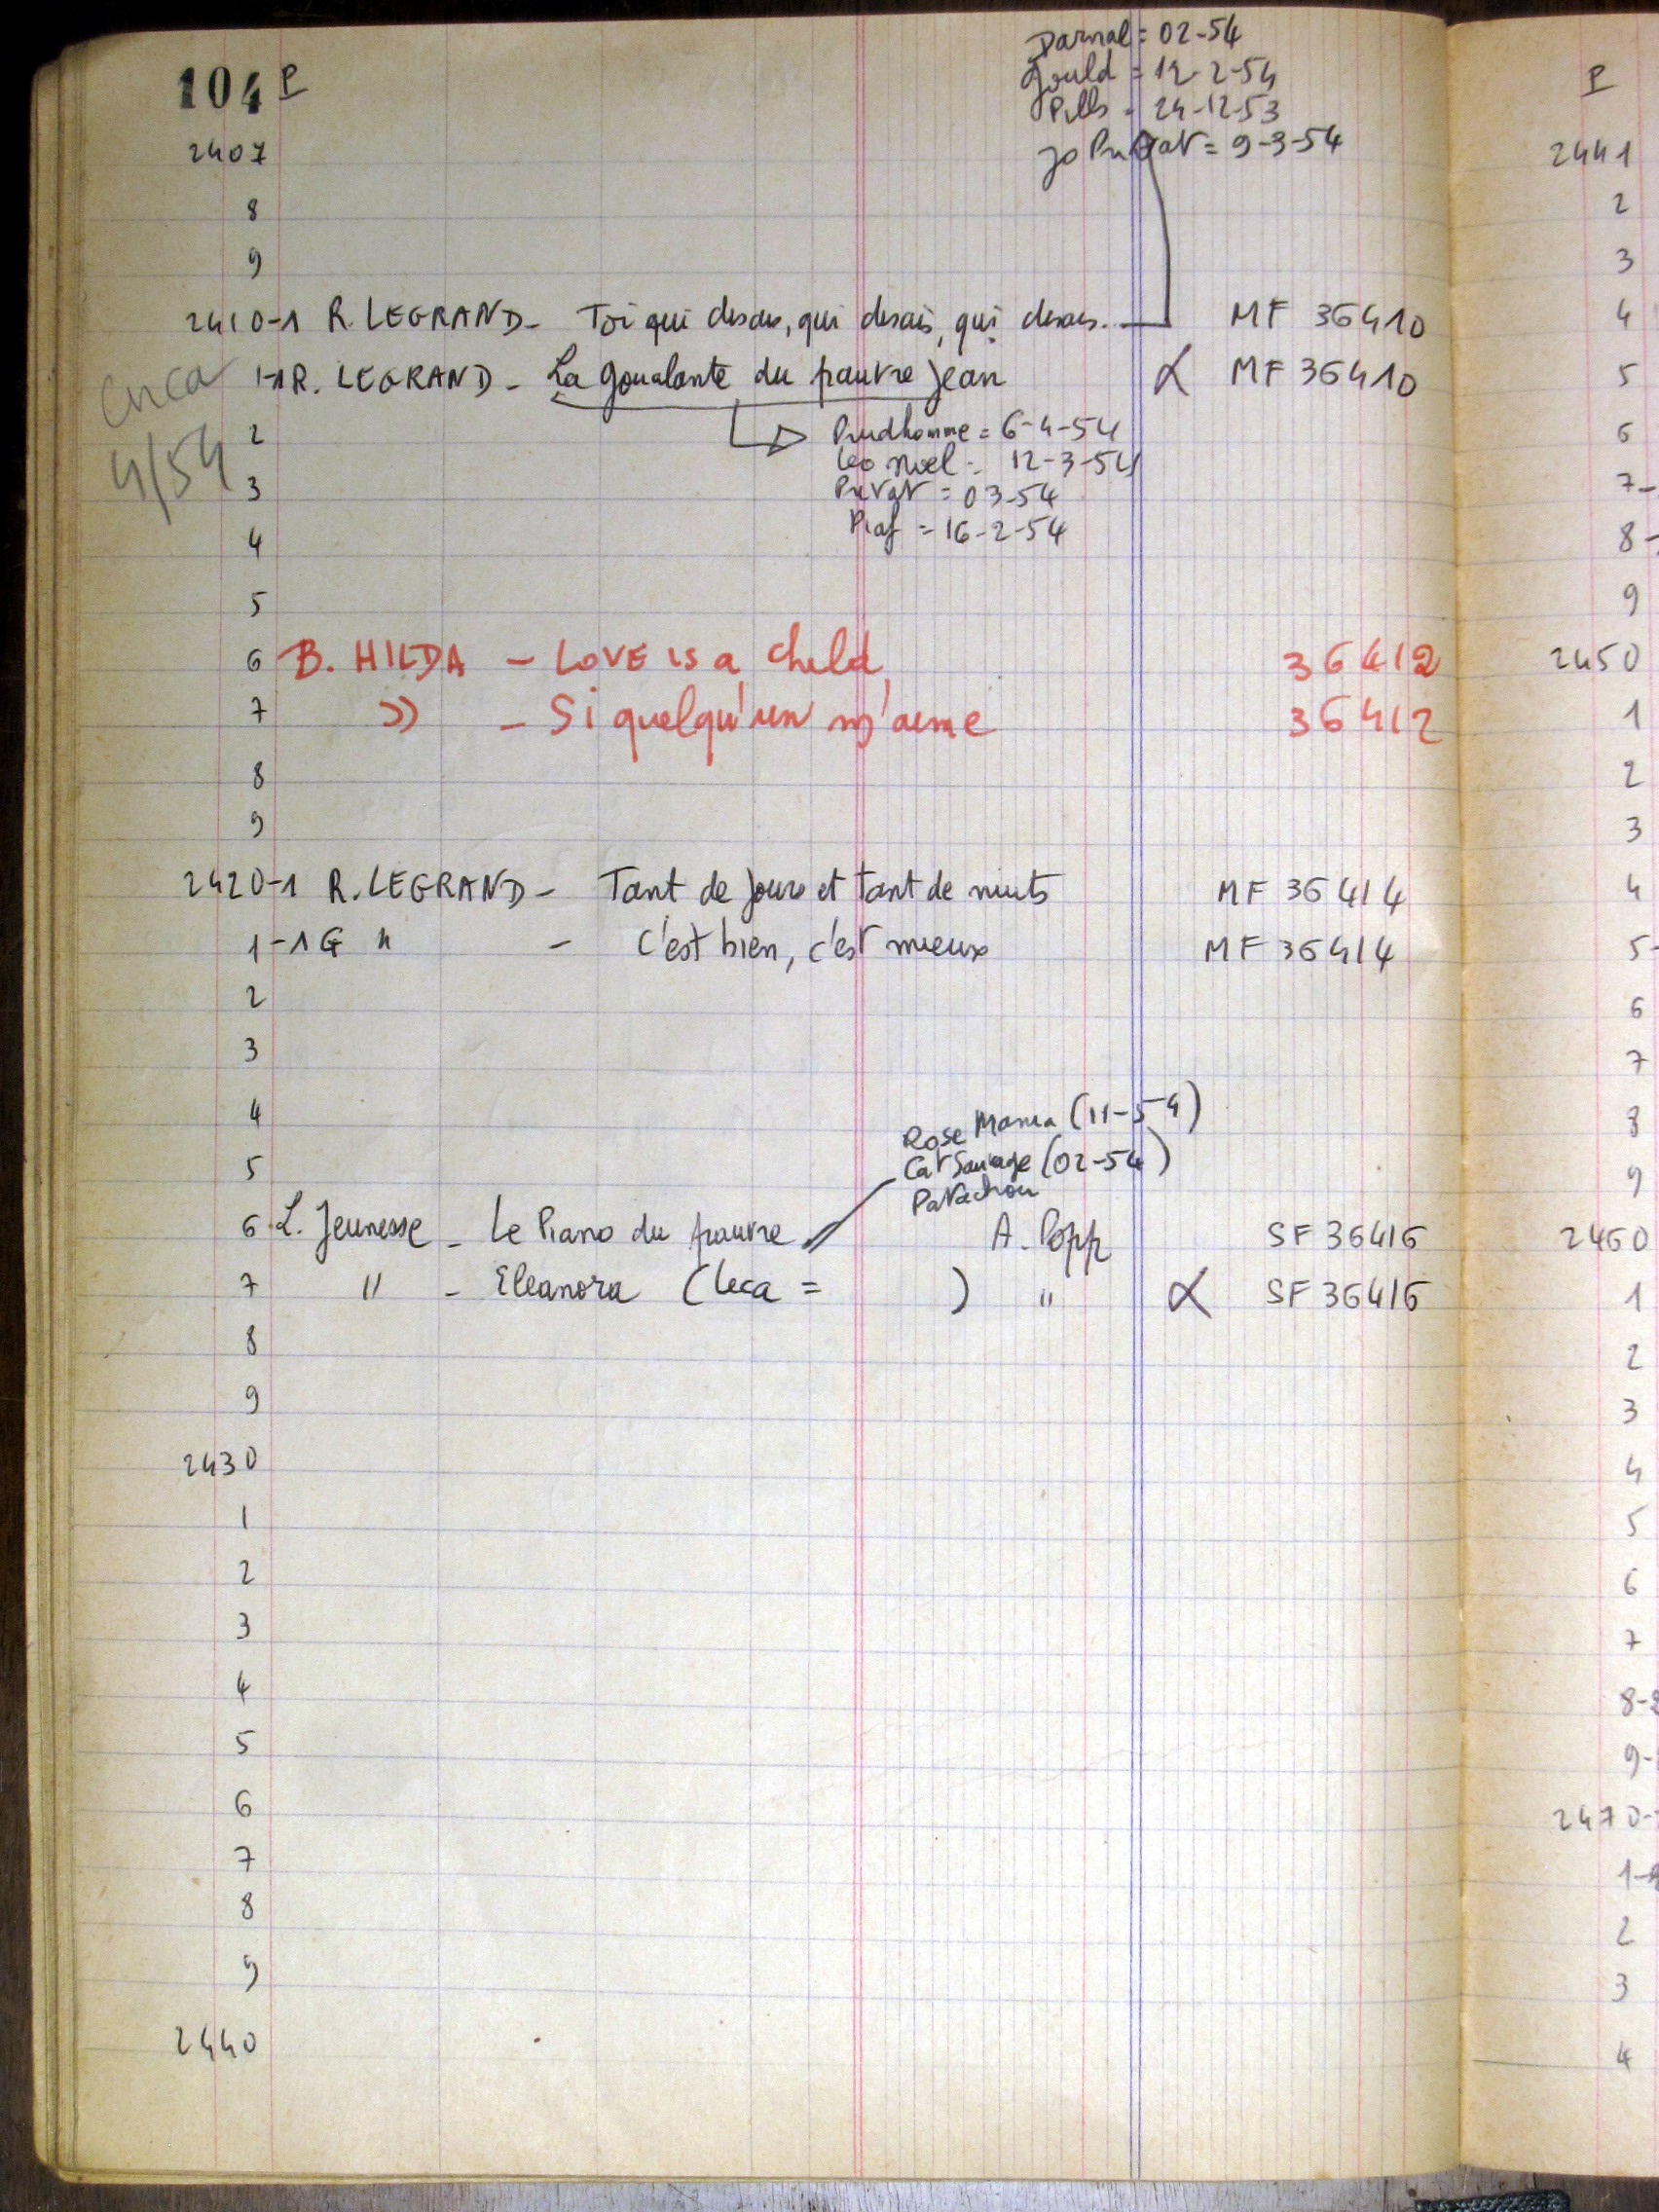 104 P
Darnal = 02-54
Gould = 12-2-54
Pills = 24-12-53
Jo Privat = 9-3-54
2407
8
9
2410-1 R. LEGRAND - Toi qui disais, qui disais, qui disais. MF 36410
1-1 R. LEGRAND - La goualante du pauvre Jean α MF 36410
Circa
4/54
2 Prudhomme = 6-4-54
Leo Noel = 12-3-54
3 Privat = 03-54
Piaf = 16-2-54
4
5
6 B. HILDA - LOVE is a child 36412
7 » - Si quelqu'un m'aime 36412
8
9
2420-1 R. LEGRAND - Tant de jours et tant de nuits MF 36414
1-1G " - C'est bien, c'est mieux MF 36414
2
3
4
Rose Mania (11-54)
5 Cat Sauvage (02-54)
Patachou
6 L. Jeunesse - Le Piano du pauvre A. Popp SF 36416
7 " - Eleanora (Leca = ) " α SF 36416
8
9
2430
1
2
3
4
5
6
7
8
9
2440
P
2441
2
3
4
5
6
7-
8-
9
2450
1
2
3
4
5-
6
7
8
9
2460
1
2
3
4
5
6
7
8-
9-
2470-
1-
2
3
4